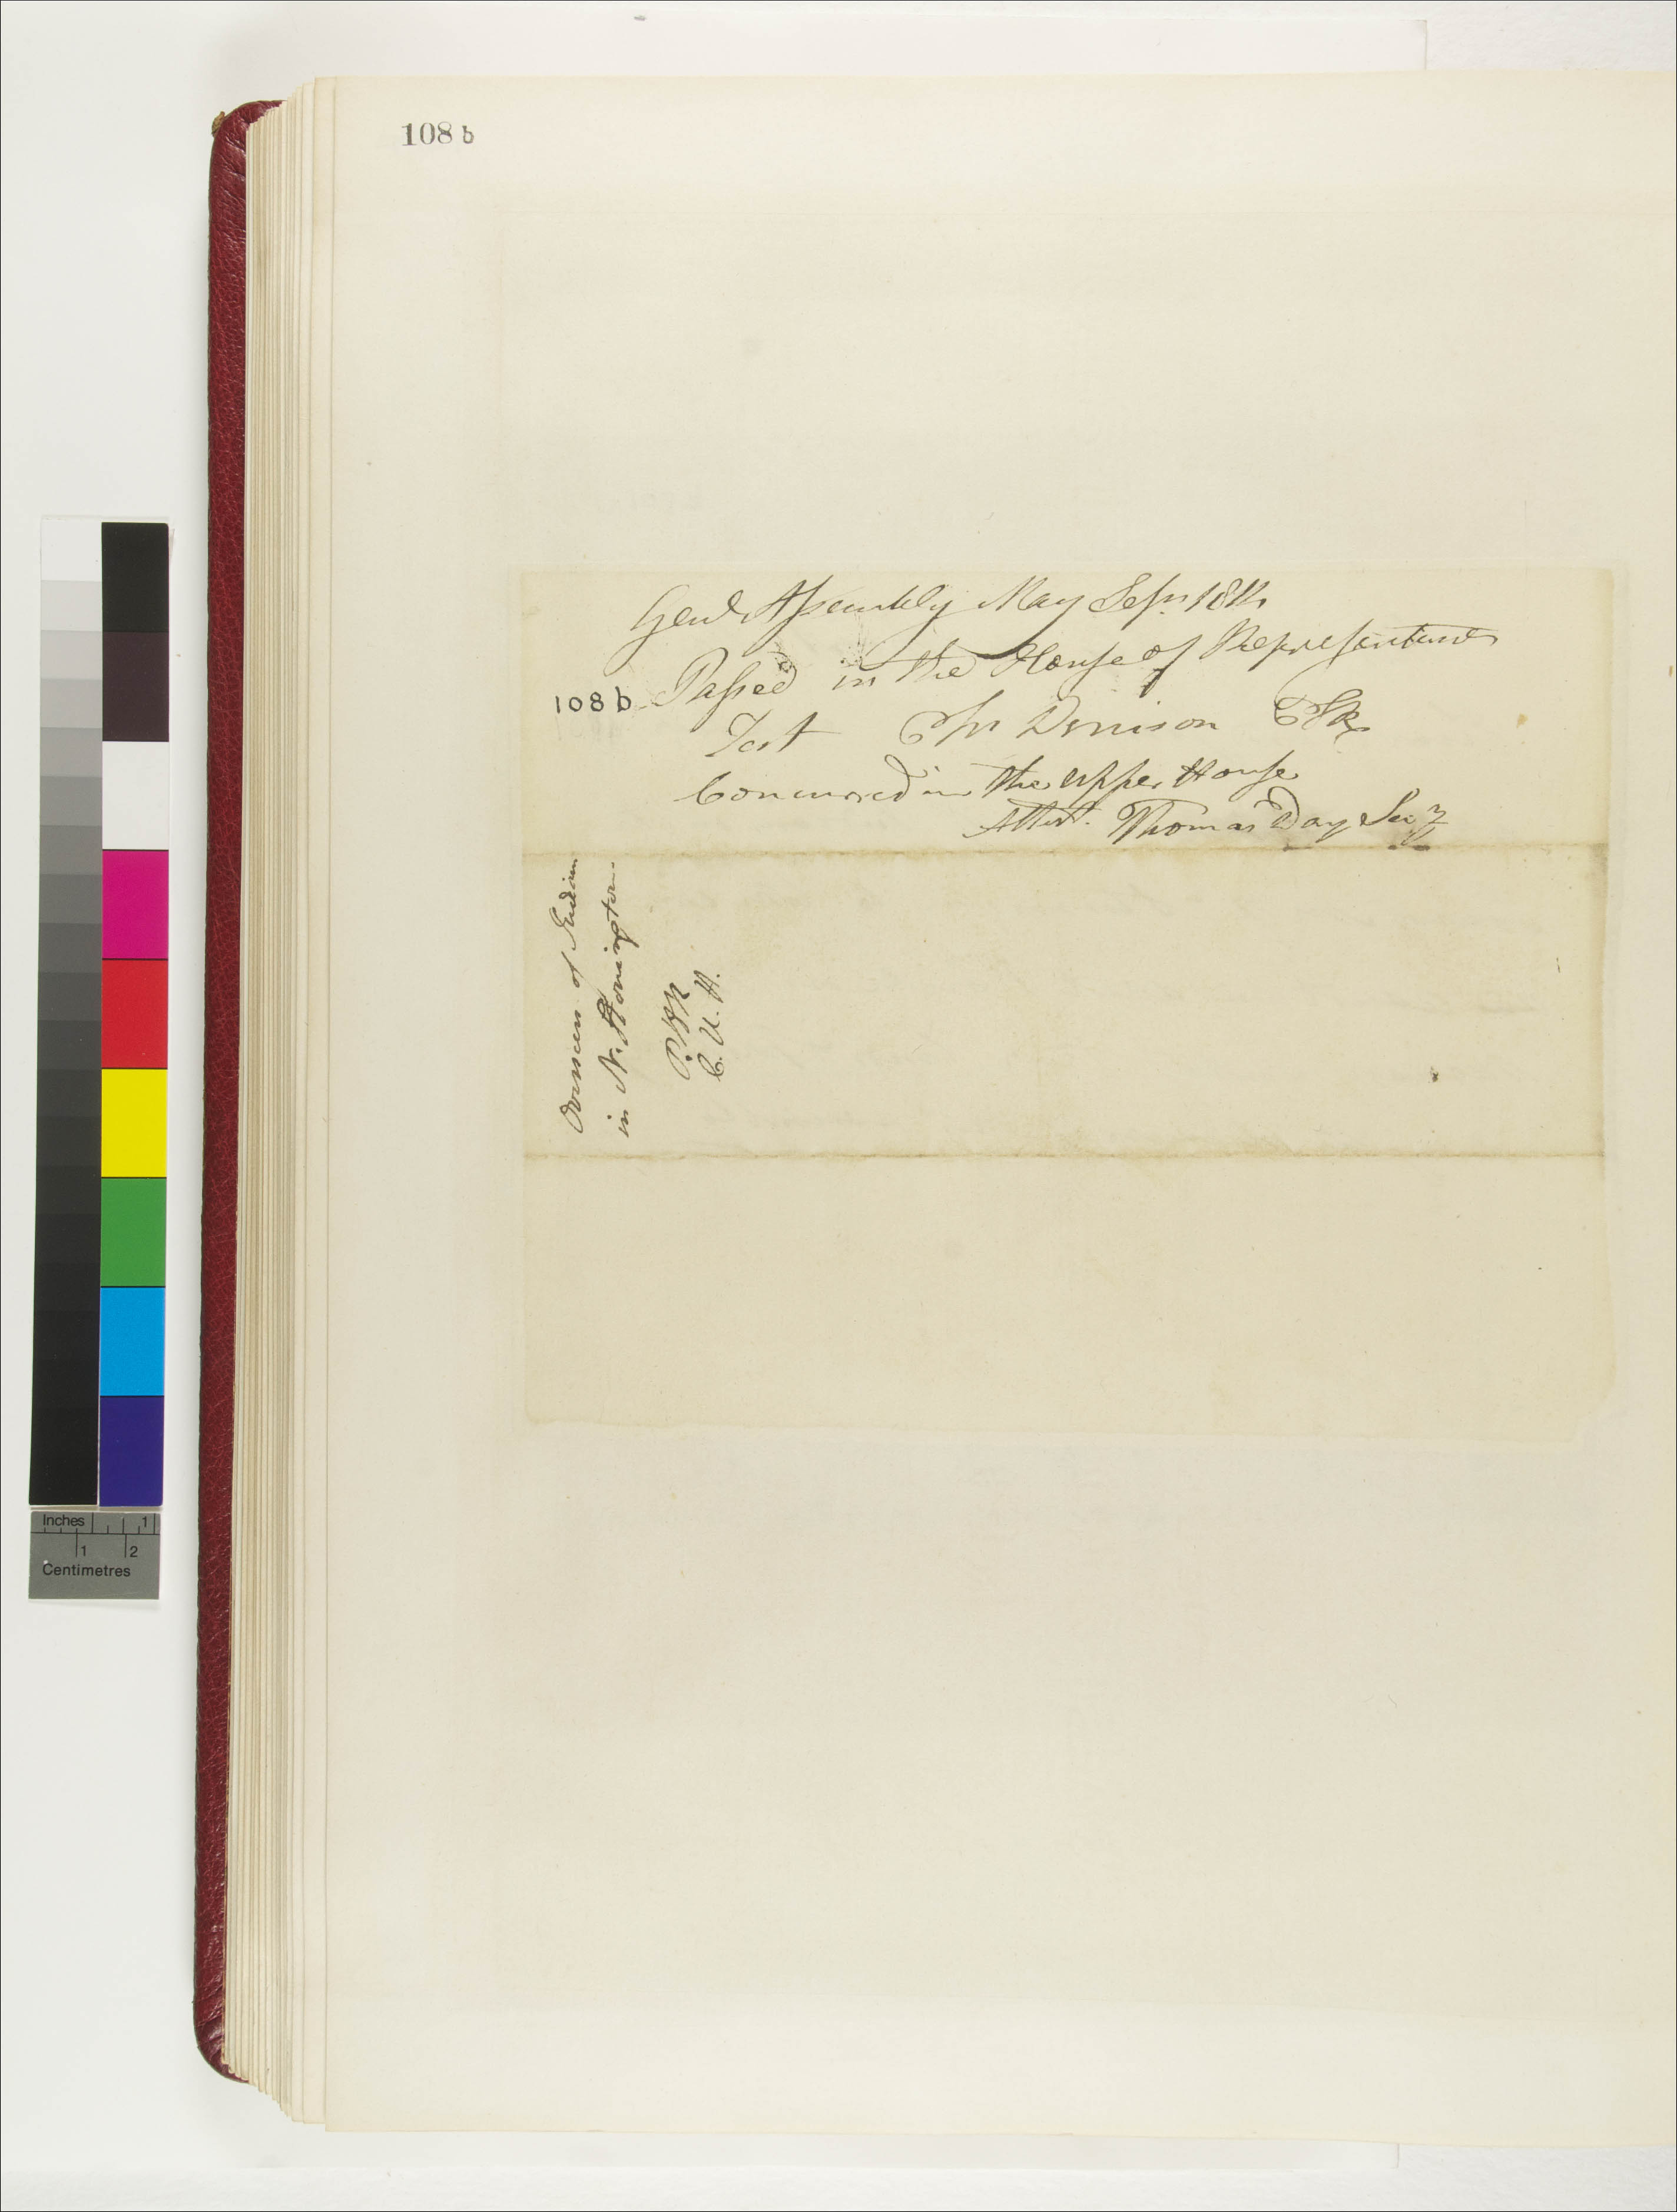 108 b
Genl Assembly May Sesn 1814
Passed in the House of Representatives
108 b
Test Ch Denison Clk
Concurred in the Upper House
Attest. Thomas Day Secy
Overseers of Indians
in N. Stonington.
P. HR
C. U. H.
Inches 1
1 2
Centimetres